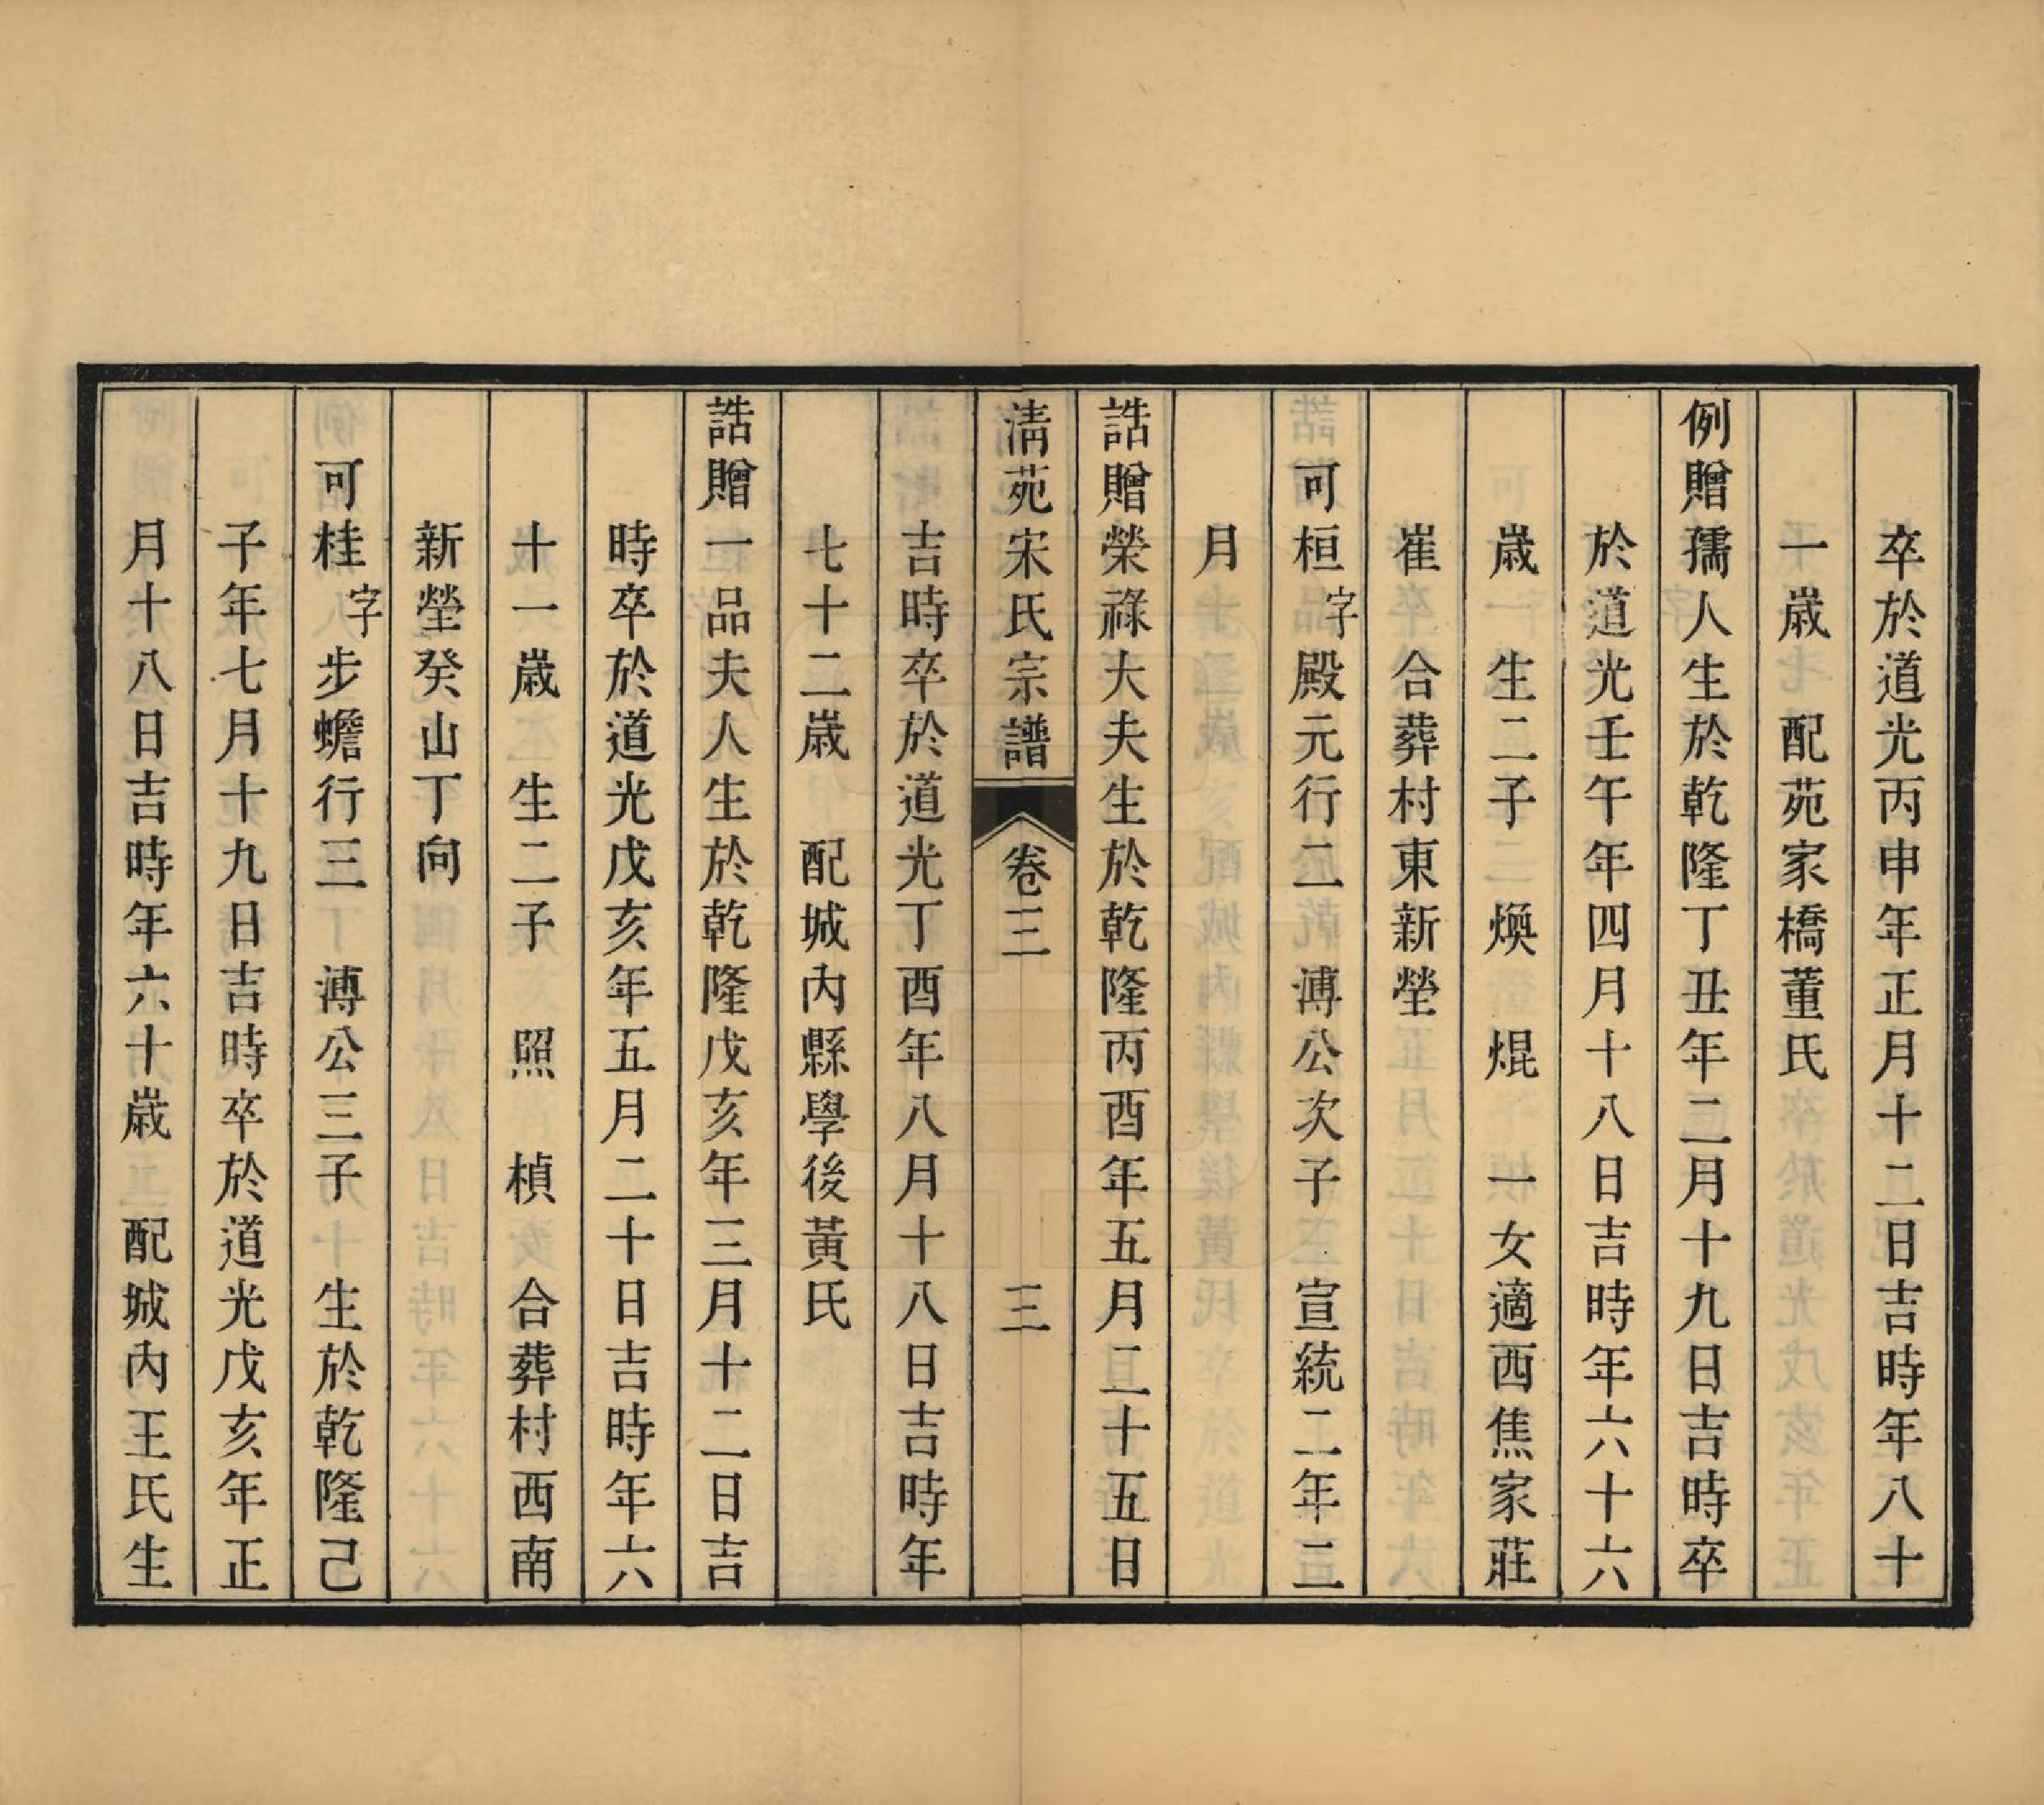 卒於道光丙申年正月十二日吉時年八十
一歲　配苑家橋董氏
例贈孺人生於乾隆丁丑年二月十九日吉時卒
於道光壬午年四月十八日吉時年六十六
歲　生二子　煥　焜　一女適西焦家莊
崔　合葬村東新塋
可桓字殿元行二　溥公次子　宣統二年二
月
誥贈榮祿大夫生於乾隆丙酉年五月二十五日
清苑宋氏宗譜　卷三　三
吉時卒於道光丁酉年八月十八日吉時年
七十二歲　配城內縣學後黃氏
誥贈一品夫人生於乾隆戊亥年三月十二日吉
時卒於道光戊亥年五月二十日吉時年六
十一歲　生二子　照　楨　合葬村西南
新塋癸山丁向
可桂字步蟾行三　溥公三子　生於乾隆己
子年七月十九日吉時卒於道光戊亥年正
月十八日吉時年六十歲　配城內王氏生